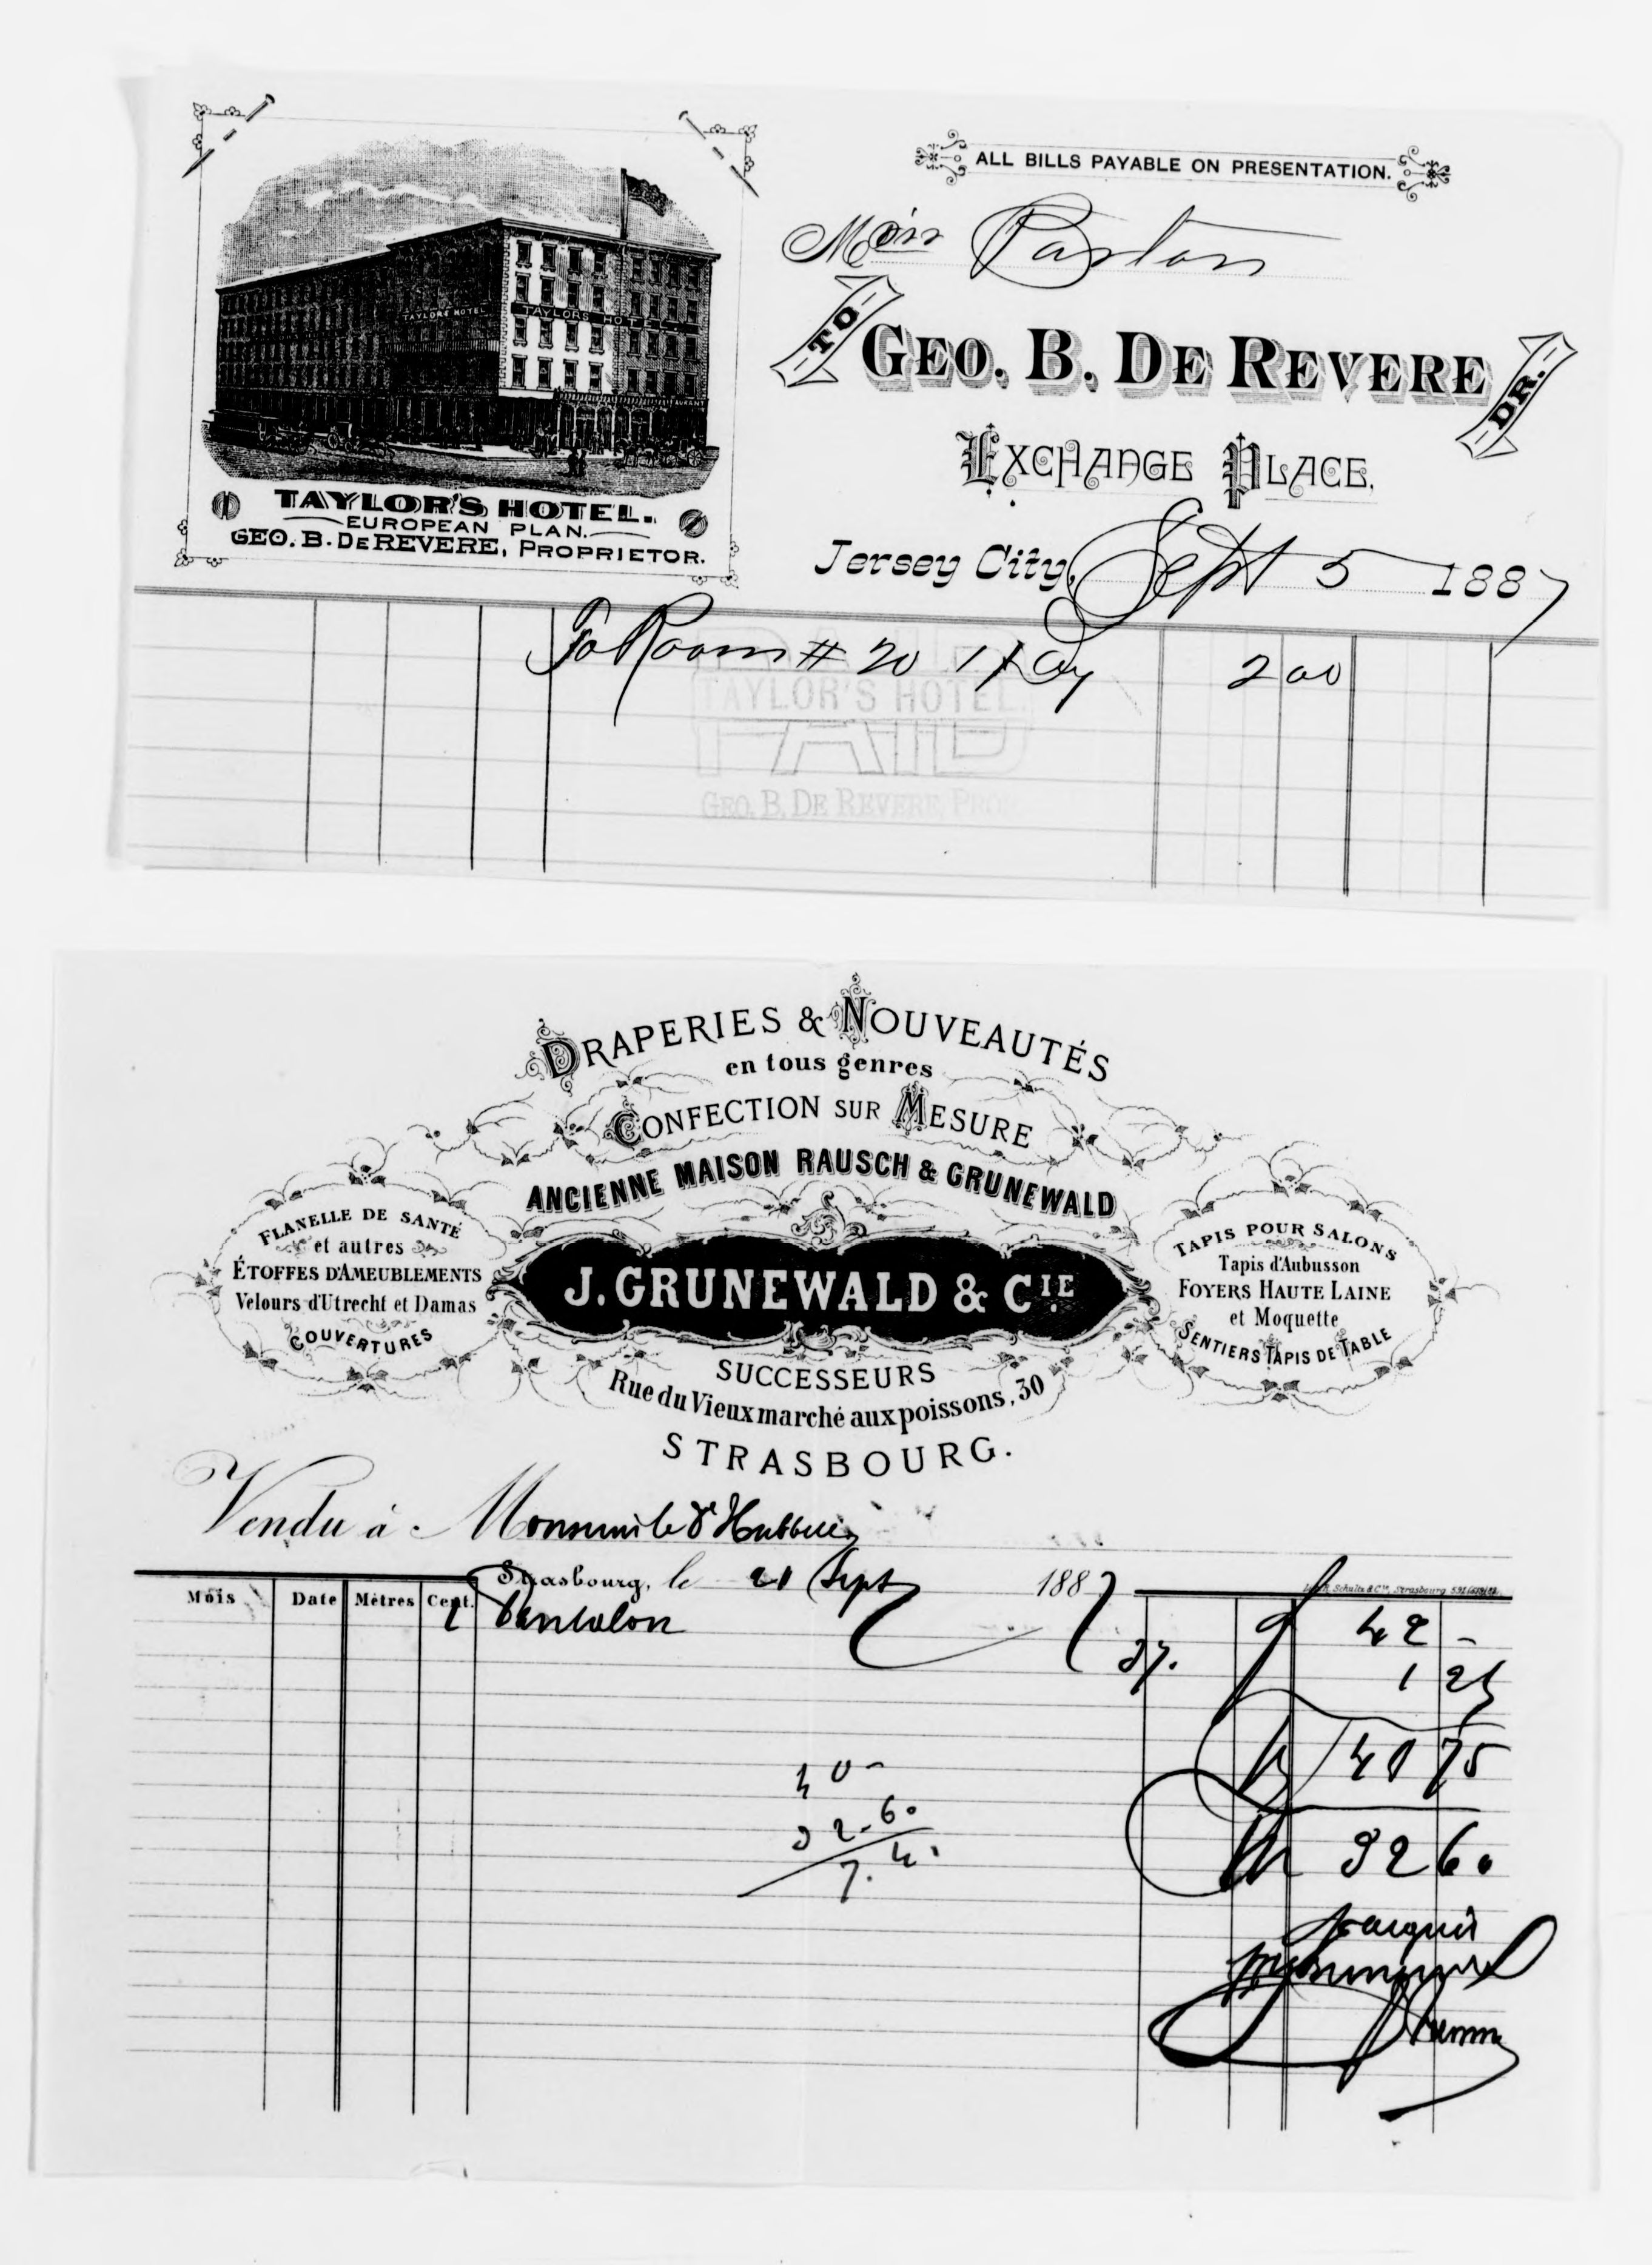 ALL BILLS PAYABLE ON PRESENTATION.
TO
GEO. B. DE REVERE
DR.
EXCHANGE PLACE,
Jersey City, Sept 5 1887
TAYLORS HOTEL
TAYLORS HOTEL
TAYLOR'S HOTEL.
EUROPEAN PLAN.
GEO. B. DEREVERE, PROPRIETOR.
To Room # 20 1 Day 2 00
PAID
TAYLOR'S HOTEL.
GEO. B. DE REVERE, PROP
DRAPERIES & NOUVEAUTÉS
en tous genres
CONFECTION SUR MESURE
ANCIENNE MAISON RAUSCH & GRUNEWALD
J. GRUNEWALD & CIE
SUCCESSEURS
Rue du Vieux marché aux poissons, 30
STRASBOURG.
FLANELLE DE SANTÉ
et autres
ÉTOFFES D'AMEUBLEMENTS
Velours d'Utrecht et Damas
COUVERTURES
TAPIS POUR SALONS
Tapis d'Aubusson
FOYERS HAUTE LAINE
et Moquette
SENTIERS TAPIS DE TABLE
Vendu à Monsieur le Dr
Strasbourg, le 21 Sept 1887
Schultz & Cie, Strasbourg
Mois Date Mètres Cent.
1 Pantalon 42 -
1 25
40 75
32 60
40 -
32.60
7.40